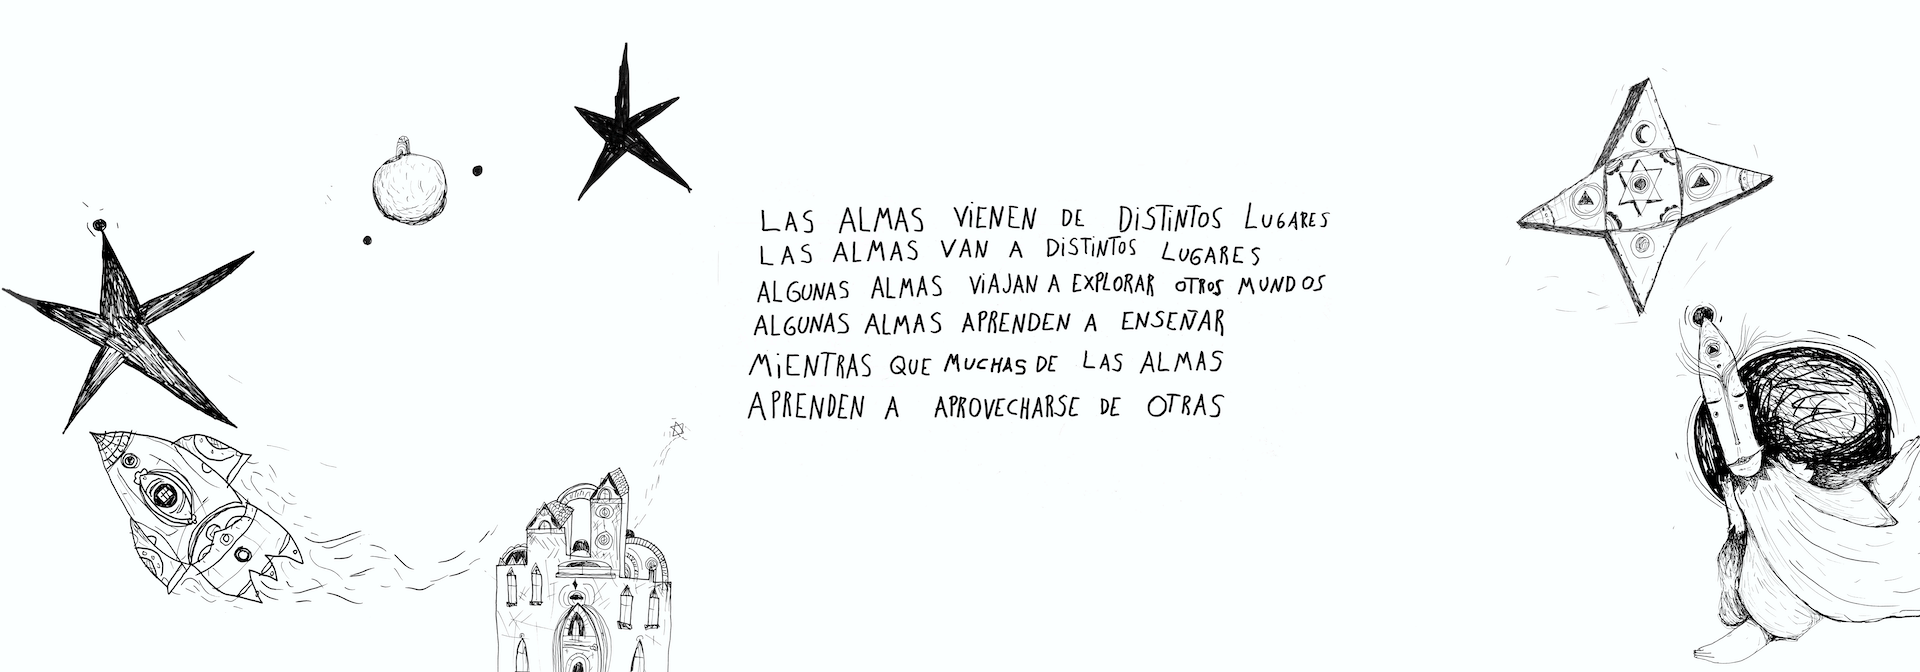 LAS ALMAS ViENEN DE DiSTiNTOS LUGARES
LAS ALMAS VAN A DiSTiNTOS LUGARES
ALGUNAS ALMAS ViAJAN A EXPLORAR OTROS MUNDOS
ALGUNAS ALMAS APRENDEN A ENSEÑAR
MiENTRAS QUE MUCHAS DE LAS ALMAS
APRENDEN A APROVECHARSE DE OTRAS